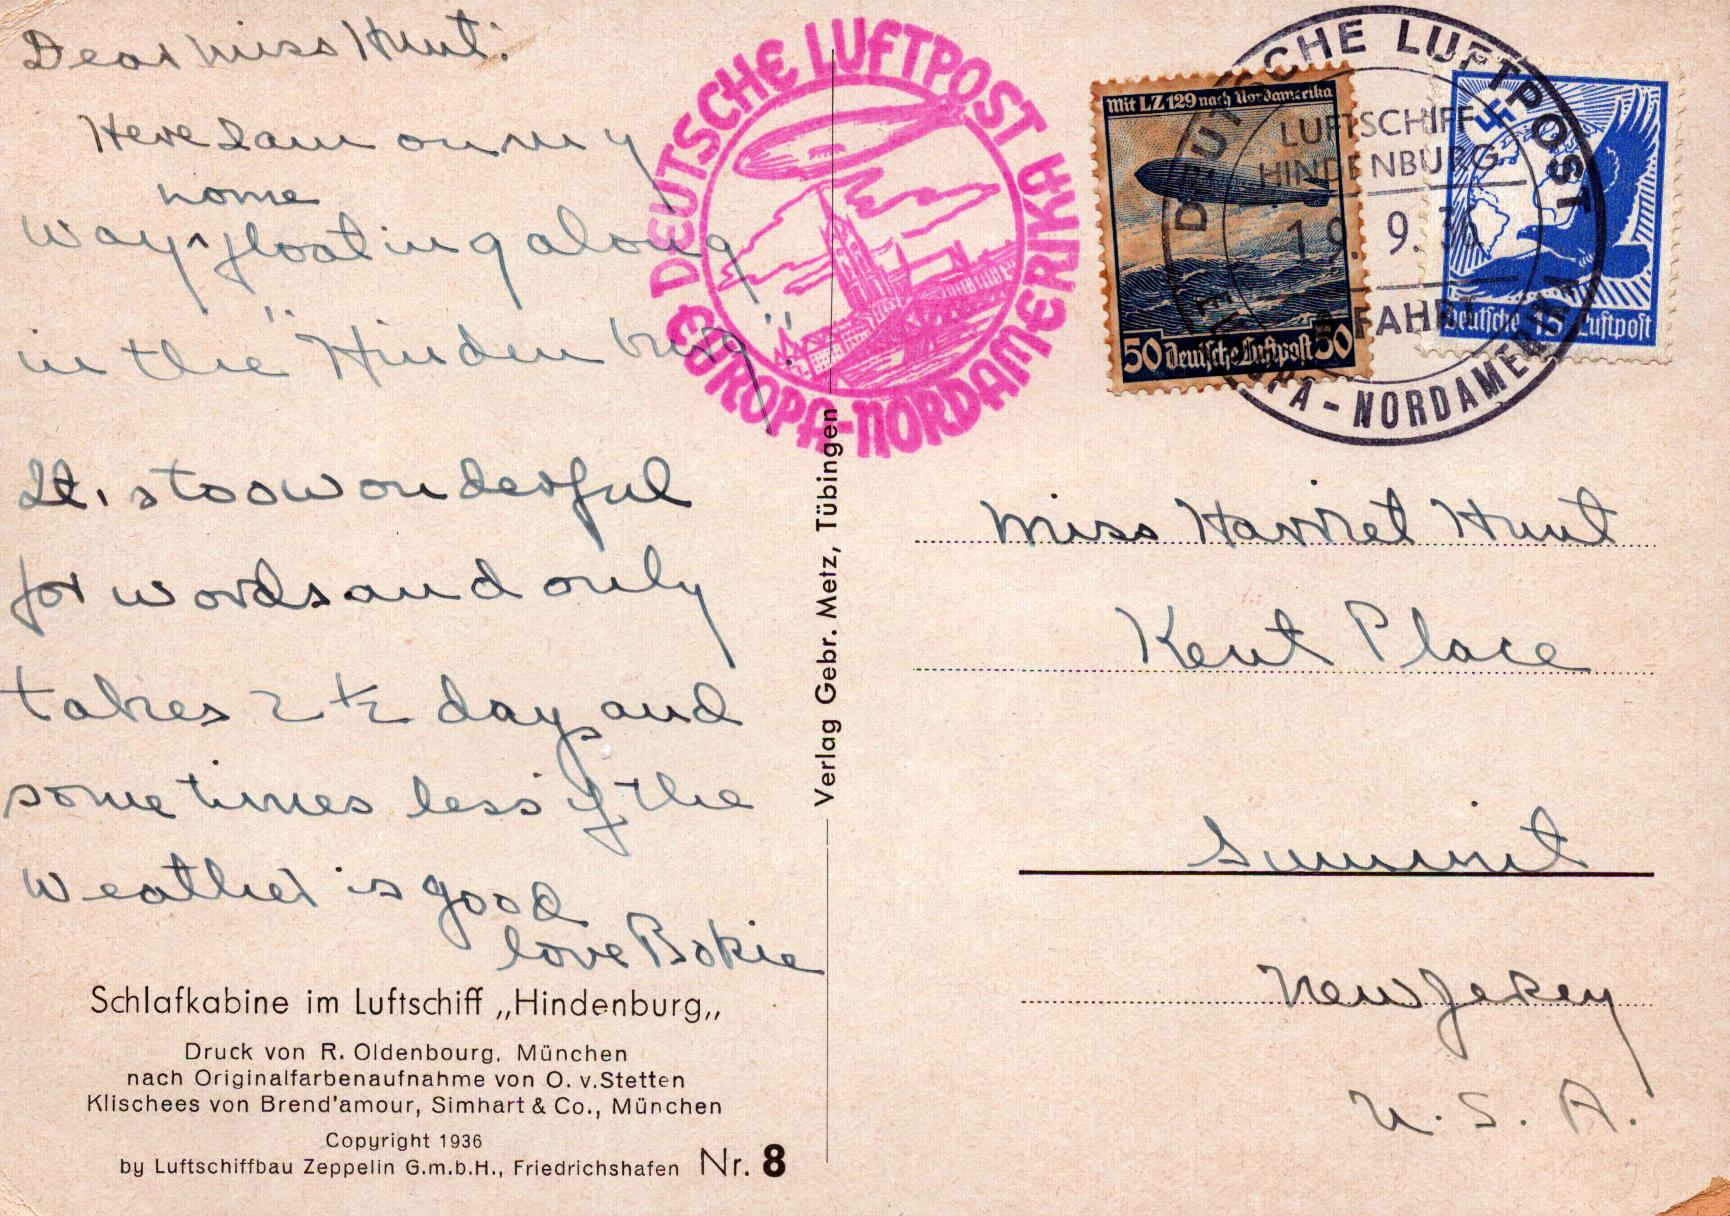 Dear Miss Hunt:
Here I am on my
home
way ^ floating along
in the "Hindenburg".
It, s too wonderful
for words and only
takes 2 ½ days and
sometimes less if the
weather is good
love Bokie
Schlafkabine im Luftschiff „Hindenburg„
Druck von R. Oldenbourg, München
nach Originalfarbenaufnahme von O. v. Stetten
Klischees von Brend'amour, Simhart & Co., München
Copyright 1936
by Luftschiffbau Zeppelin G.m.b.H., Friedrichshafen Nr. 8
Verlag Gebr. Metz, Tübingen
DEUTSCHE LUFTPOST
EUROPA-NORDAMERIKA
Mit LZ 129 nach Nordamerika
50 Deutsche Luftpost 50
DEUTSCHE LUFTPOST
LUFTSCHIFF
HINDENBURG
19. 9. 36
FAHRT
EUROPA-NORDAMERIKA
Deutsche Luftpost
Miss Harriet Hunt
Kent Place
Summit
New Jersey
U. S. A.